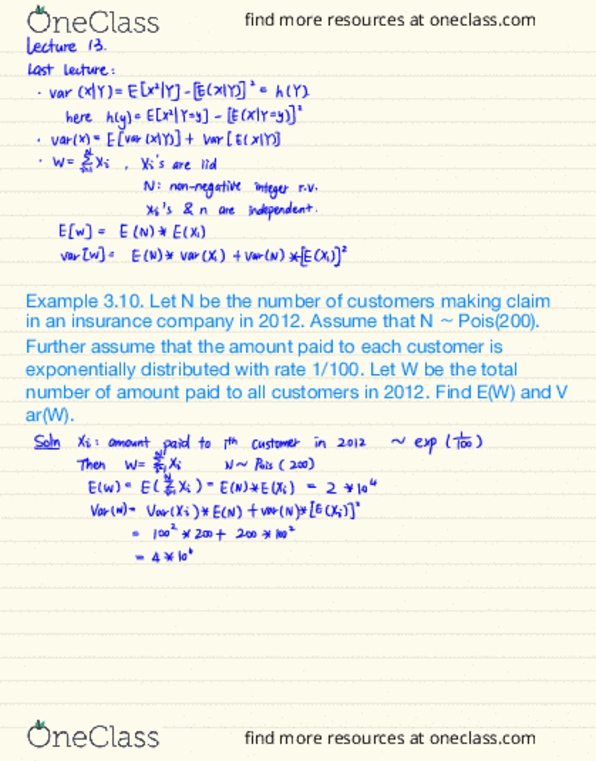 OneClass find more resources at oneclass.com
Lecture 13.
Last lecture:
· var (X|Y) = E[X²|Y] - [E(X|Y)]² = h(Y).
here h(y) = E[X²|Y=y] - [E(X|Y=y)]²
· var(X) = E[var(X|Y)] + Var[E(X|Y)]
· W = Σᵢ₌₁ᴺ Xᵢ , Xᵢ's are iid
N: non-negative integer r.v.
Xᵢ's & n are independent.
E[W] = E(N) * E(Xᵢ)
var[W] = E(N) * var(Xᵢ) + var(N) * [E(Xᵢ)]²
Example 3.10. Let N be the number of customers making claim
in an insurance company in 2012. Assume that N ~ Pois(200).
Further assume that the amount paid to each customer is
exponentially distributed with rate 1/100. Let W be the total
number of amount paid to all customers in 2012. Find E(W) and V
ar(W).
Soln Xᵢ: amount paid to ith customer in 2012 ~ exp (1/100)
Then W = Σᵢ₌₁ᴺ Xᵢ N ~ Pois (200)
E(W) = E(Σᵢ₌₁ᴺ Xᵢ) = E(N) * E(Xᵢ) = 2 * 10⁴
Var(W) = Var(Xᵢ) * E(N) + var(N) * [E(Xᵢ)]²
= 100² * 200 + 200 * 100²
= 4 * 10⁶
OneClass find more resources at oneclass.com